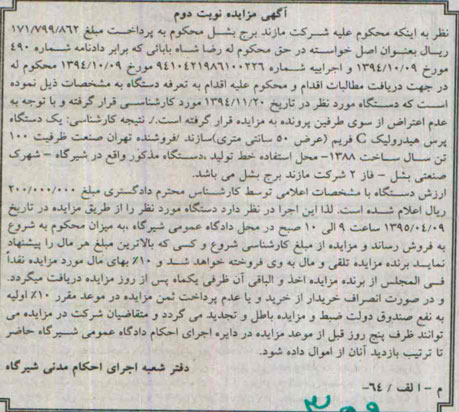 آگهی مزایده نوبت دوم
نظر به اینکه محکوم علیه شرکت مازند برج بشل محکوم به پرداخت مبلغ ۱۷۱/۷۹۹/۸۶۲
ریال بعنوان اصل خواسته در حق محکوم له رضا شاه بابائی که برابر دادنامه شماره ۴۹۰
مورخ ۱۳۹۴/۱۰/۰۹ و اجراییه شماره ۹۴۱۰۴۲۱۹۸۶۱۰۰۲۲۶ مورخ ۱۳۹۴/۱۰/۰۹ محکوم له
در جهت دریافت مطالبات اقدام و محکوم علیه اقدام به تعرفه دستگاه به مشخصات ذیل نموده
است که دستگاه مورد نظر در تاریخ ۱۳۹۴/۱۱/۲۰ مورد کارشناسی قرار گرفته و با توجه به
عدم اعتراض از سوی طرفین پرونده به مزایده قرار گرفته است./. نتیجه کارشناسی: یک دستگاه
پرس هیدرولیک C فریم (عرض ۵۰ سانتی متری)سازند /فروشنده تهران صنعت ظرفیت ۱۰۰
تن سال ساخت ۱۳۸۸- محل استفاده خط تولید ،دستگاه مذکور واقع در شیرگاه - شهرک
صنعتی بشل - فاز ۲ شرکت مازند برج بشل می باشد.
ارزش دستگاه با مشخصات اعلامی توسط کارشناس محترم دادگستری مبلغ ۲۰۰/۰۰۰/۰۰۰
ریال اعلام شده است. لذا این اجرا در نظر دارد دستگاه مورد نظر را از طریق مزایده در تاریخ
۱۳۹۵/۰۴/۰۹ ساعت ۹ الی ۱۰ صبح در محل دادگاه عمومی شیرگاه ،به میزان محکوم به شروع
به فروش رساند و مزایده از مبلغ کارشناسی شروع و کسی که بالاترین مبلغ هر مال را پیشنهاد
نماید برنده مزایده تلقی و مال به وی فروخته خواهد شد و ۱۰% بهای مال مورد مزایده نقداً
فی المجلس از برنده مزایده اخذ و الباقی آن ظرفی یکماه پس از روز مزایده دریافت میگردد
و در صورت انصراف خریدار از خرید و یا عدم پرداخت ثمن مزایده در موعد مقرر ۱۰% اولیه
به نفع صندوق دولت ضبط و مزایده باطل و تجدید می گردد و متقاضیان شرکت در مزایده می
توانند ظرف پنج روز قبل از موعد مزایده در دایره اجرای احکام دادگاه عمومی شیرگاه حاضر
تا ترتیب بازدید آنان از اموال داده شود.
دفتر شعبه اجرای احکام مدنی شیرگاه
م - ا لف / ۶۴-